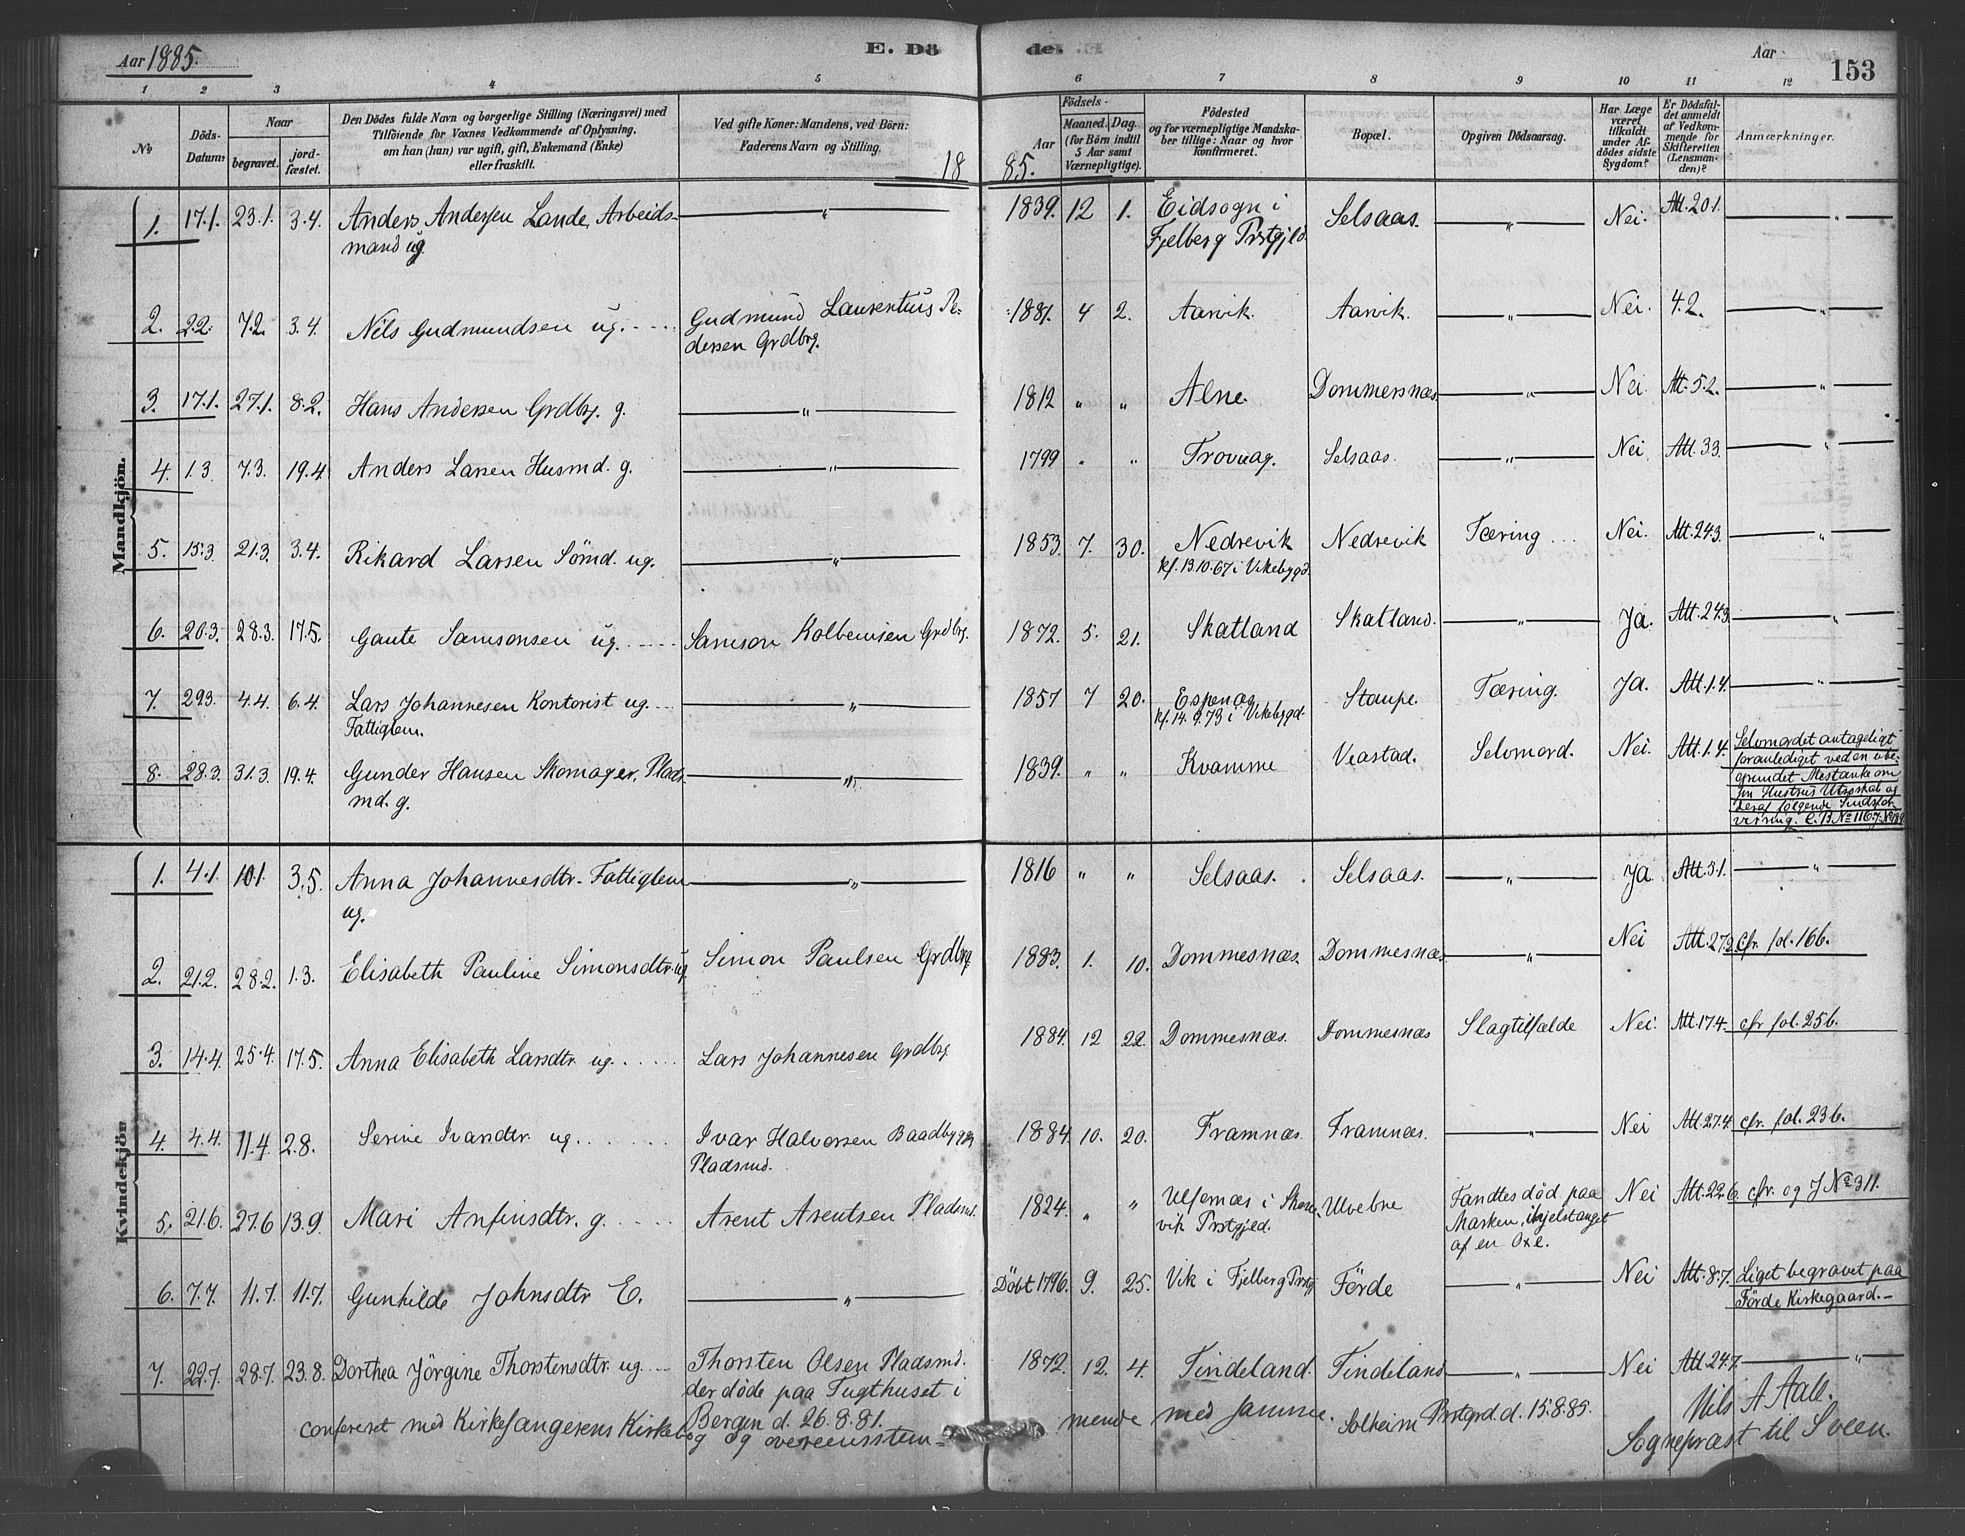 Aar 1885.
E. Döde.
Aar
153
1 2 3 4 5 6 7 8 9 10 11 12
No
Döds-Datum:
Naar
begravet.
jordfæstet.
Den Dödes fulde Navn og borgerlige Stilling (Næringsvei) med
Tilföiende for Voxnes Vedkommende af Oplysning,
om han (hun) var ugift, gift, Enkemand (Enke)
eller fraskilt.
Ved gifte Koner: Mandens, ved Börn:
Faderens Navn og Stilling.
Födsels-
Aar
Maaned. Dag.
(for Börn indtil
5 Aar samt
Værnepligtige).
Födested
og for værnepligtige Mandskaber tillige: Naar og hvor
Konfirmeret.
Bopæl.
Opgiven Dödsaarsag.
Har Læge
været
tilkaldt
under Afdödes sidste
Sygdom?
Er Dödsfaldet anmeldt
af Vedkommende for
Skifteretten
(Lensmanden)?
Anmærkninger.
18 85.
Mandkjön.
1. 17.1. 23.1. 3.4. Anders Andersen Lande, Arbeids- — " — 1839. 12 1. Eidsogn i Selsaas. — " — Nei. Att. 20.1. — " —
mand ug. Fjelberg Prstgjeld.
2. 2.2. 7.2. 3.4. Nils Gudmundsen ug. Gudmund Laurentius Pe- 1881. 4 2. Aarvik. Aarvik. — " — Nei. 4.2. — " —
dersen Grdbrg.
3. 17.1. 27.1. 8.2. Hans Andersen Grdbrg. g. — " — 1812 " " Alne. Dommersnæs. — " — Nei. Att. 5.2. — " —
4. 1.3 7.3. 19.4 Anders Larsen Husmd. g. — " — 1799 " " Trovaag. Selsaas. — " — Nei. Att. 3.3. — " —
5. 15.3 21.3. 3.4. Rikard Larsen Sömd. ug. — " — 1853. 7. 30. Nedrevik Nedrevik Tæring Nei. Att. 24.3. — " —
kf. 13.10.67 i Vikebygd.
6. 20.3. 28.3. 17.5. Gaute Samsonsen ug. Samson Kolbensen Grdbrg. 1872. 5. 21. Skatland Skatland. — " — Ja. Att. 24.3. — " —
7. 29.3. 4.4. 6.4. Lars Johannesen Kontorist ug. — " — 1857 7 20. Espenæs Staupe. Tæring. Ja. Att. 1.4. — " —
Fattiglem. kf. 14.9.73 i Vikebygd.
8. 28.3. 31.3. 19.4. Gunder Hansen Skomager, Plads- — " — 1839. " " Kvamme Veastad. Selvmord. Nei. Att. 1.4. Selvmordet antageligt
md. g. foranlediget ved en ube-
grundet Mistanke om
sin Hustrus Utroskab og
deraf følgende Sindsfor-
virring. C.B. No 116.
Kvindekjön
1. 4.1. 10.1. 3.5. Anna Johannesdtr. Fattiglem — " — 1816 " " Selsaas. Selsaas. — " — Ja Att. 5.1. — " —
ug.
2. 21.2. 28.2. 1.3. Elisabeth Pauline Simonsdtr. ug Simon Paulsen Grdbrg. 1883. 1. 10. Dommesnæs. Dommesnæs. — " — Nei Att. 27.2. cfr. fol. 16b.
3. 14.4. 25.4. 17.5. Anna Elisabeth Larsdtr. ug. Lars Johannesen Grdbrg. 1884. 12 22. Dommesnæs. Dommesnæs Slagtilfælde Nei. Att. 17.4. cfr fol. 25b.
4. 4.4. 11.4. 2.8. Serine Ivardtr. ug. Ivar Halvorsen Baadbygger, 1884. 10. 20. Framnæs. Framnæs. — " — Nei Att. 27.4. cfr. fol. 23b.
Pladsmd.
5. 21.6. 27.6 13.9. Mari Anfinsdtr. g. Arent Arentsen Pladsmd. 1824. " " Ulfernæs i Skone- Ulvebne Fandtes död paa Nei Att. 22.6. cfr. og J No 311.
vik Prstgjeld. Marken, ihjelstanget
af en Oxe.
6. 7.7. 11.7. 11.7. Gunhilde Johnsdtr. E. — " — Döbt 1796. 9. 25. Vik i Fjelberg Prstgj. Förde — " — Nei Att. 8.7. Liget begravet paa
Förde Kirkegaard.
7. 22.7. 28.7. 23.8. Dorthea Jörgine Thorstensdtr. ug. Thorsten Olsen Pladsmd. 1872. 12. 4. Tindeland. Tindeland — " — Nei Att. 24.7. — " —
der döde paa Tugthuset i
Bergen d. 26.8.81.
Confereret med Kirkesangerens Kirkebog og overensstemmende med samme. Solheim Prstgrd. d. 15.8.85. Nils A Aall.
Sognepræst til Sveen.